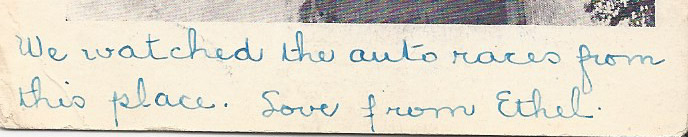 We watched the auto races from
this place. Love from Ethel.